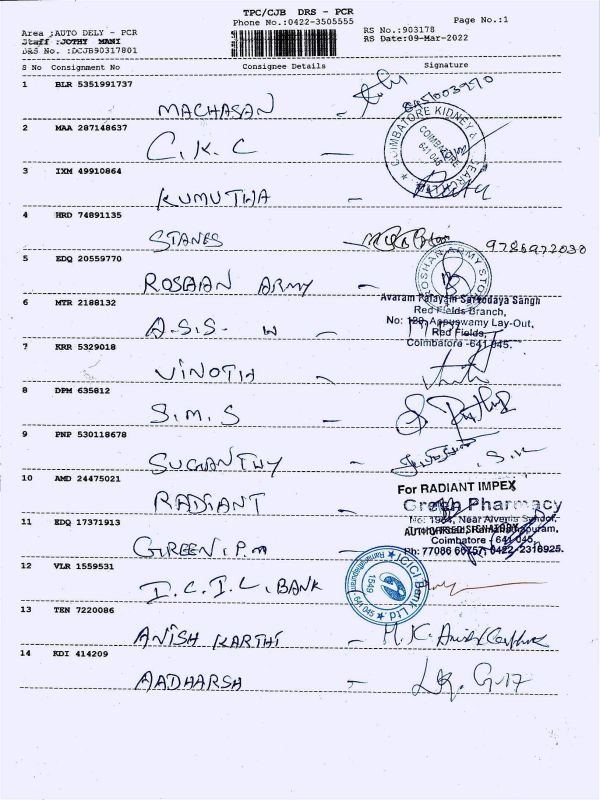 TPC/CJB DRS - PCR
Phone No.:0422-3505555
Page No.:1
Area :AUTO DELY - PCR
Staff :JOTHY MANI
DRS No. :DCJB90317801
RS No.:903178
RS Date:09-Mar-2022
S No Consignment No Consignee Details Signature
1 BLR 5351991737
MACHASAN
2 MAA 287148637
C.K.C
COIMBATORE KIDNEY &
COIMBATORE
641 045
3 IXM 49910864
KUMUTHA
4 HRD 74891135
STANES
5 EDQ 20559770
ROSHAN ARMY
ROSHAN ARMY STO
6 MTR 2188132
A.S.S. W
Avaram Palayam Sarvodaya Sangh
Red Fields Branch,
No: Appuswamy Lay-Out,
Red Fields,
Coimbatore -641 045.
7 KRR 5329018
VINOTH
8 DPM 635812
S.M.S
9 PNP 530118678
SUGANTHY
S.K
10 AMD 24475021
RADIANT
For RADIANT IMPEX
AUTHORISED SIGNATORY
11 EDQ 17371913
GREEN.P.M
Green Pharmacy
Near Alvernia School,
Coimbatore - 641 045.
Ph: 77086 66757, 0422- 2318925.
12 VLR 1559531
I.C.I.C. BANK
ICICI Bank Ltd.
Ramanathapuram, 641 045
1549
13 TEN 7220086
ANISH KARTHI
14 KDI 414209
AADHARSH